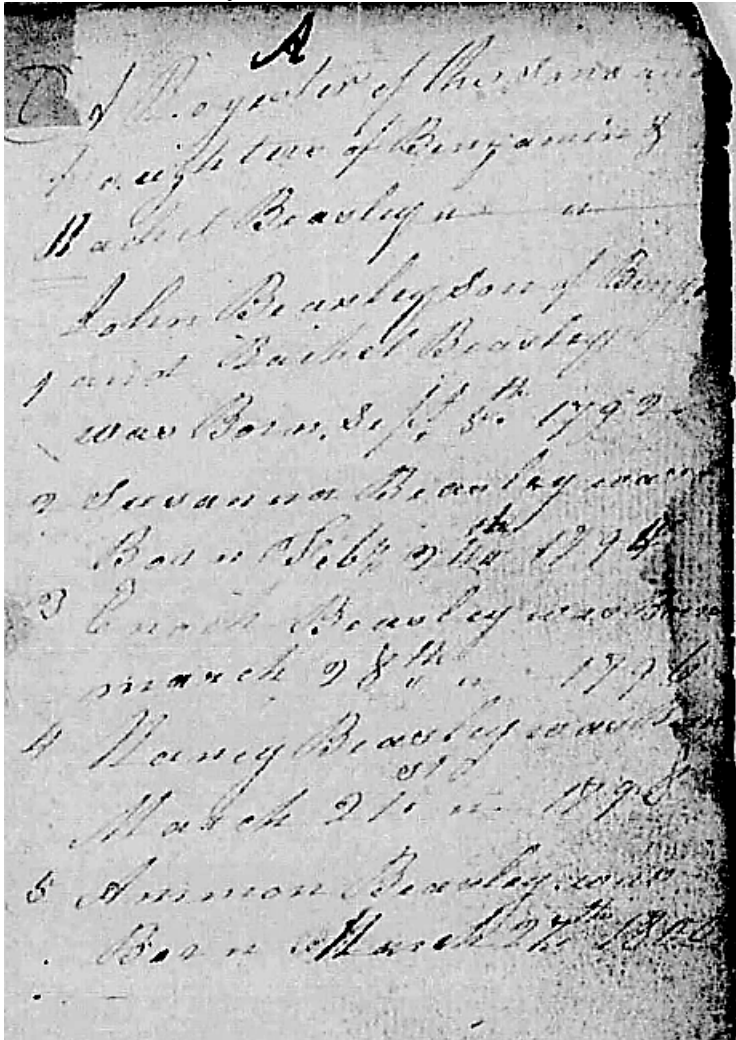 A
A Regester of the sons and
Daughters of Benjamin &
Rachel Beasley
John Beasley Son of Benj
1 and Rachel Beasley
was Born Sept 5th 1792
2 Susanna Beasley was
Born Feby 1794
3 Enoch Beasley was Born
march 28th 1796
4 Nancy Beasley was Born
March 21st 1798
5 Ammon Beasley was
Born March 27th 1800